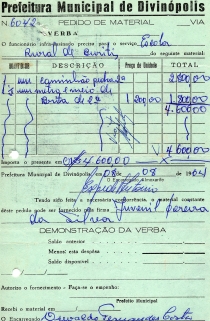 Prefeitura Municipal de Divinópolis
N. 6042 PEDIDO DE MATERIAL VIA
VERBA
O funcionário infra-assinado precisa para o serviço Escola
Rural de Buriti do seguinte material:
DESCRIÇÃO Preço da Unidade TOTAL
1 um caminhão pedra 2ª 2.800,00
1½ um metro e meio de
brita de 2ª 1.200,00 1.800,00
4.600,00
4.600,00
Importa o presente em Cr$ 4.600,00
Prefeitura Municipal de Divinópolis, em 08 / 08 / 1964
O Encarregado Almoxarife
Tendo sido feita a necessária conferência, o material constante
dêste pedido pode ser fornecido pela firma Juvenil Pereira
da Silva
DEMONSTRAÇÃO DA VERBA
Saldo anterior
Menos: esta despêsa
Saldo disponível
Autorizo o fornecimento - Faça-se o empenho:
Prefeito Municipal
Recebi o material em
O Encarregado Oswaldo Fernandes Costa